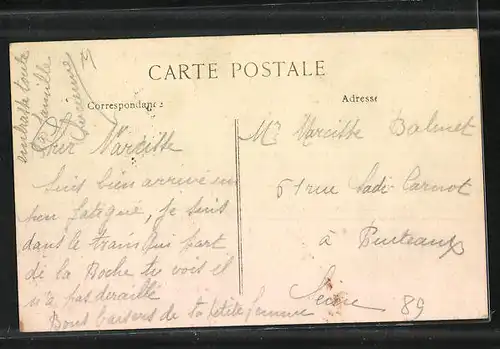 CARTE POSTALE
Correspondance
Adresse
embrasse toute
la famille
Cher Narcisse
Suis bien arrivé un
peu fatigué, je suis
dans le train qui part
de la Roche tu vois il
n'a pas deraillé
Bons baisers de ta petite femme
Mr Narcisse Balmet
61 rue Sadi Carnot
à Puteaux
Seine 89